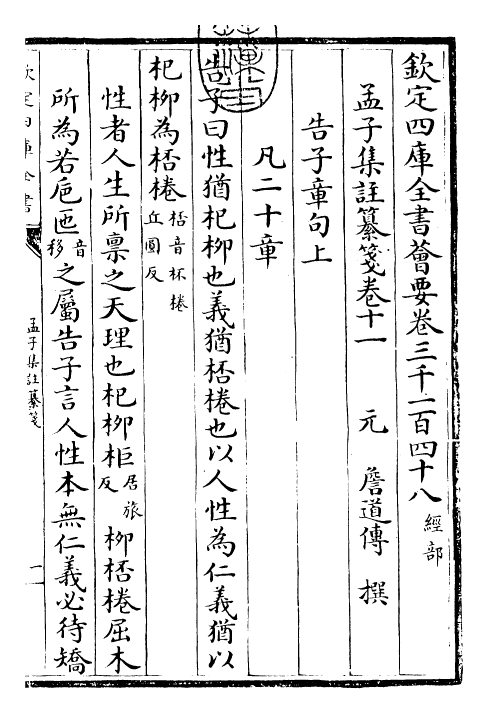 欽定四庫全書薈要卷三千二百四十八 經部
孟子集註纂箋卷十一 元 詹道傳 撰
告子章句上
凡二十章
告子曰性猶杞柳也義猶桮棬也以人性為仁義猶以
杞柳為桮棬 桮音杯棬丘圓反
性者人生所禀之天理也杞柳柜 居旅反 柳桮棬屈木
所為若巵匜 音移 之屬告子言人性本無仁義必待矯
欽定四庫全書
孟子集註纂箋